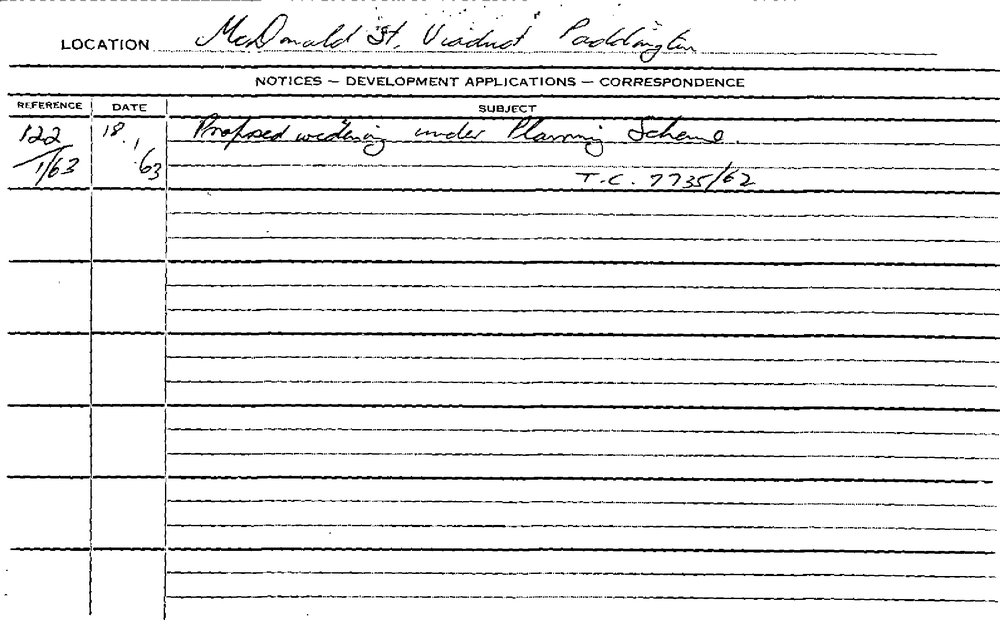 LOCATION McDonald St, Viaduct Paddington
NOTICES – DEVELOPMENT APPLICATIONS – CORRESPONDENCE
REFERENCE DATE SUBJECT
122 18 Proposed widening under Planning Scheme.
1/63 1/63
T.C. 7735/62